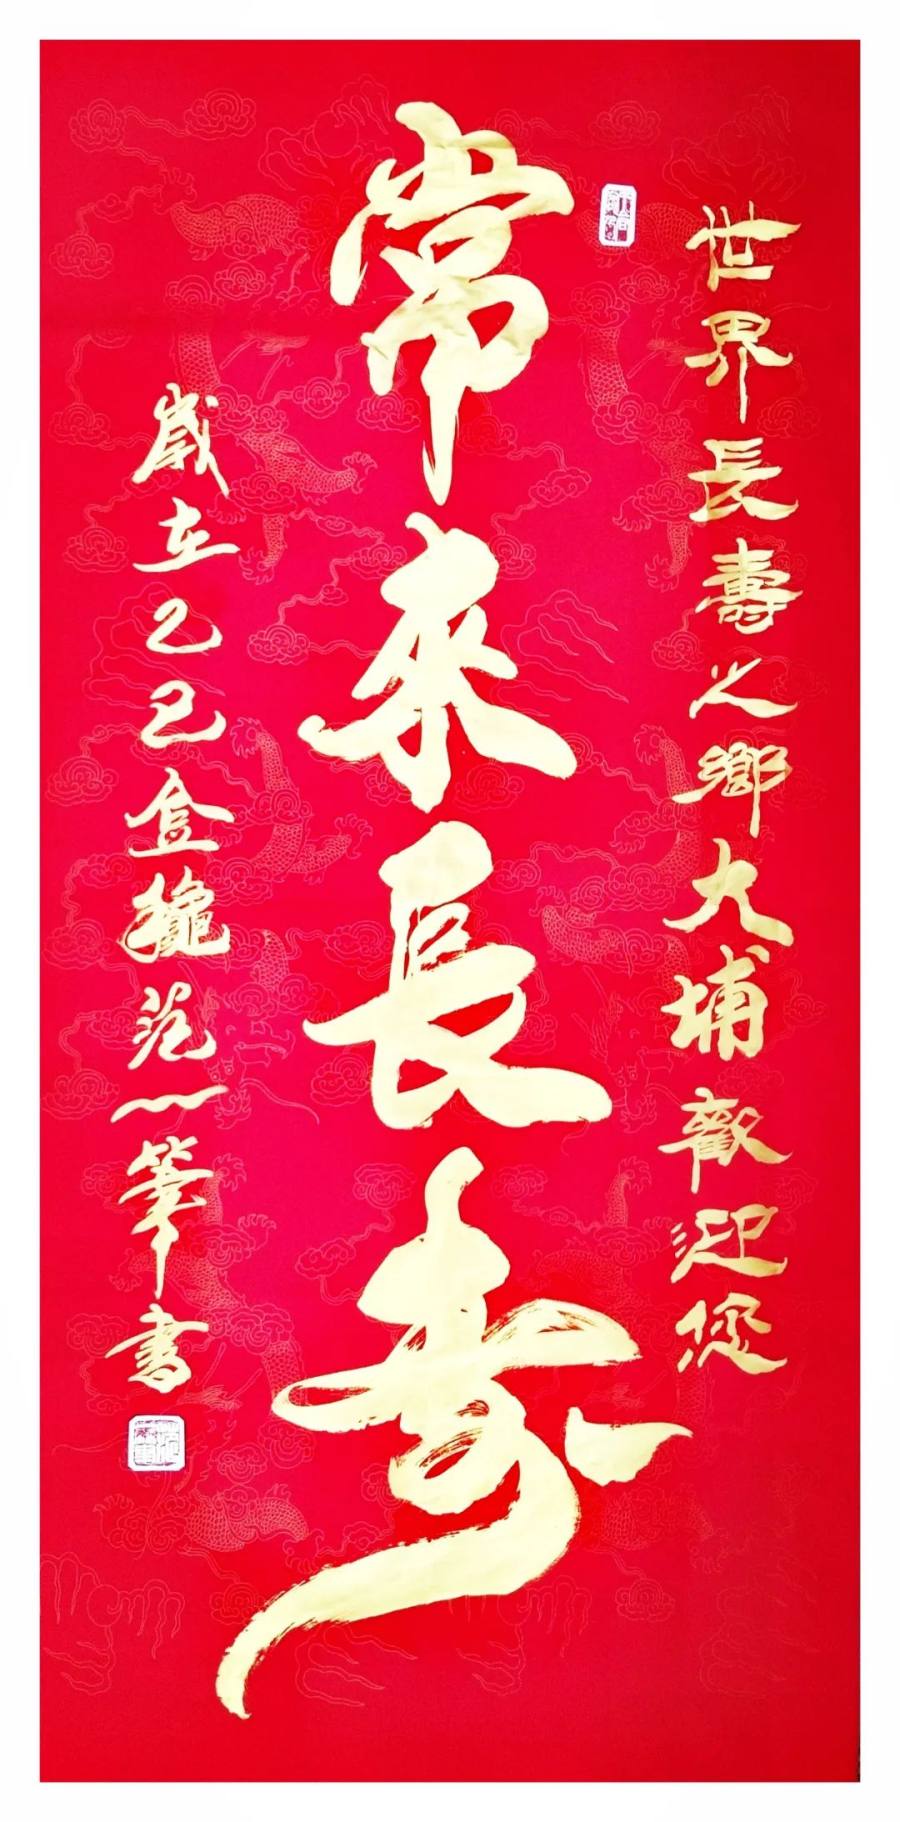 世界長壽之鄉大埔歡迎您
常來長寿
歲在乙巳盒範一筆書